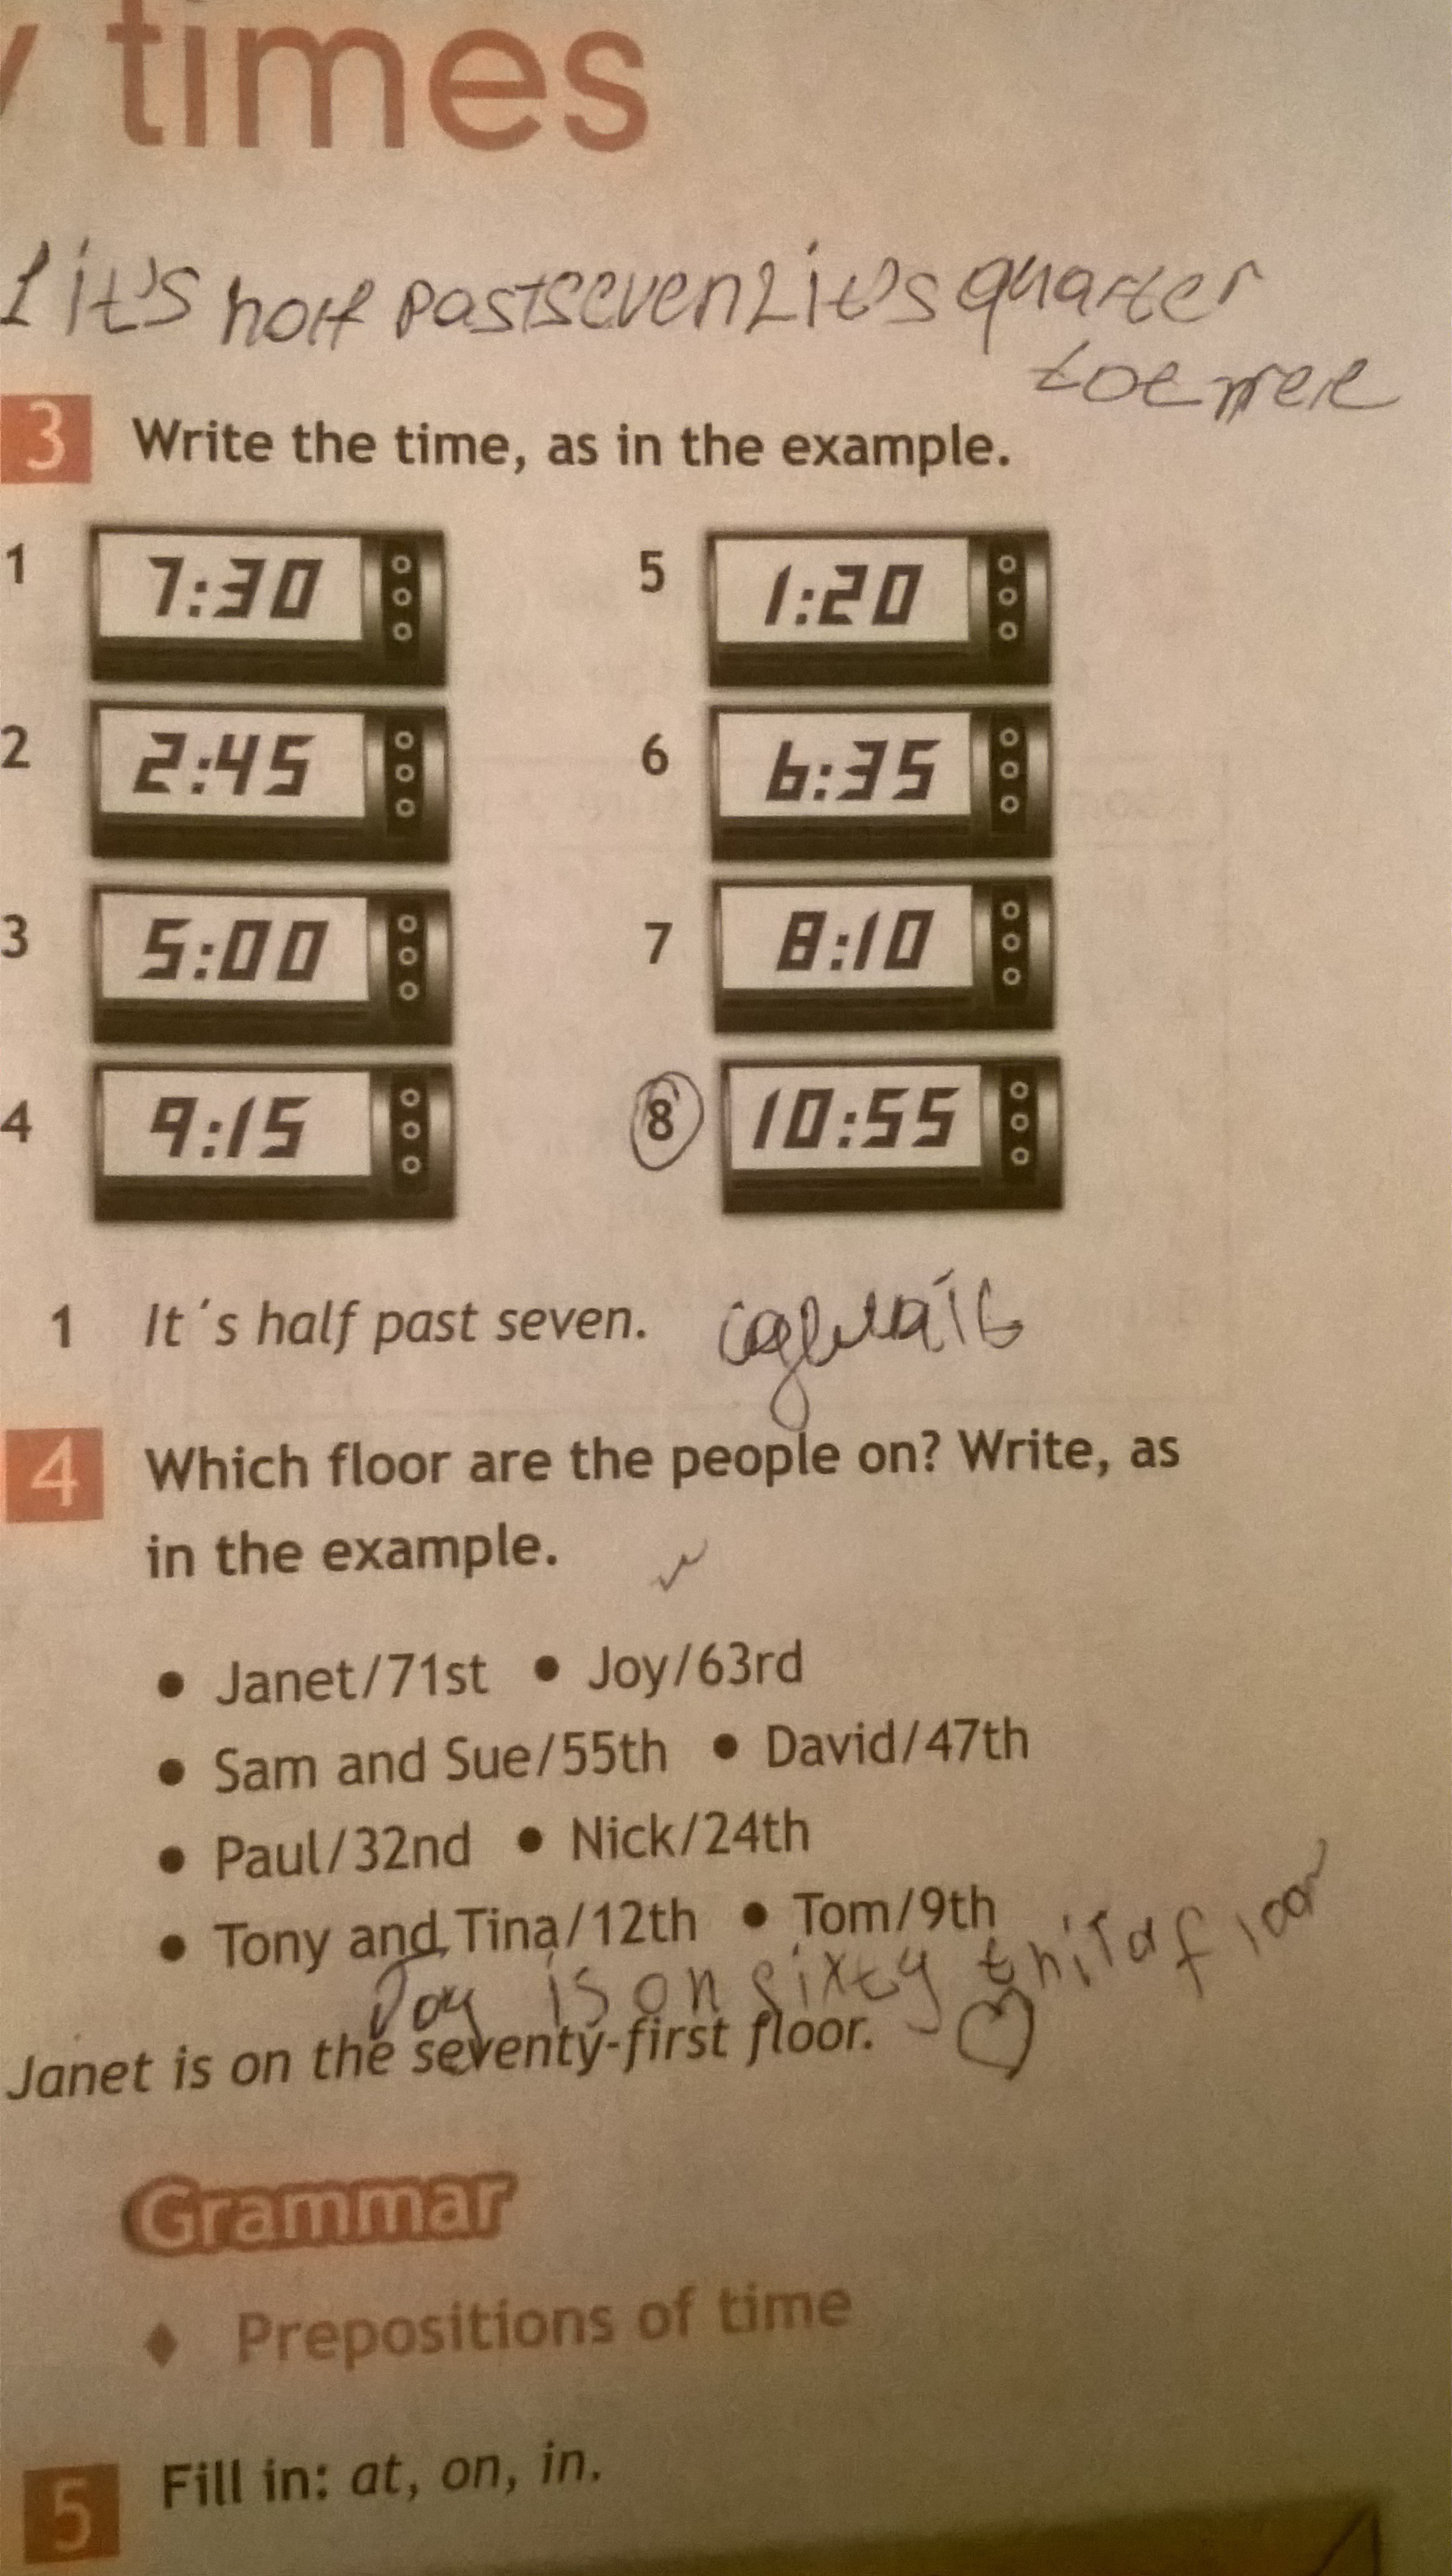 y times
1 it's half past seven 2 it's quarter
3 Write the time, as in the example.
1 7:30 5 1:20
2 2:45 6 6:35
3 5:00 7 8:10
4 9:15 8 10:55
1 It´s half past seven.
4 Which floor are the people on? Write, as
in the example.
• Janet/71st • Joy/63rd
• Sam and Sue/55th • David/47th
• Paul/32nd • Nick/24th
• Tony and Tina/12th • Tom/9th
Joy is on sixty
Janet is on the seventy-first floor.
Grammar
♦ Prepositions of time
5 Fill in: at, on, in.